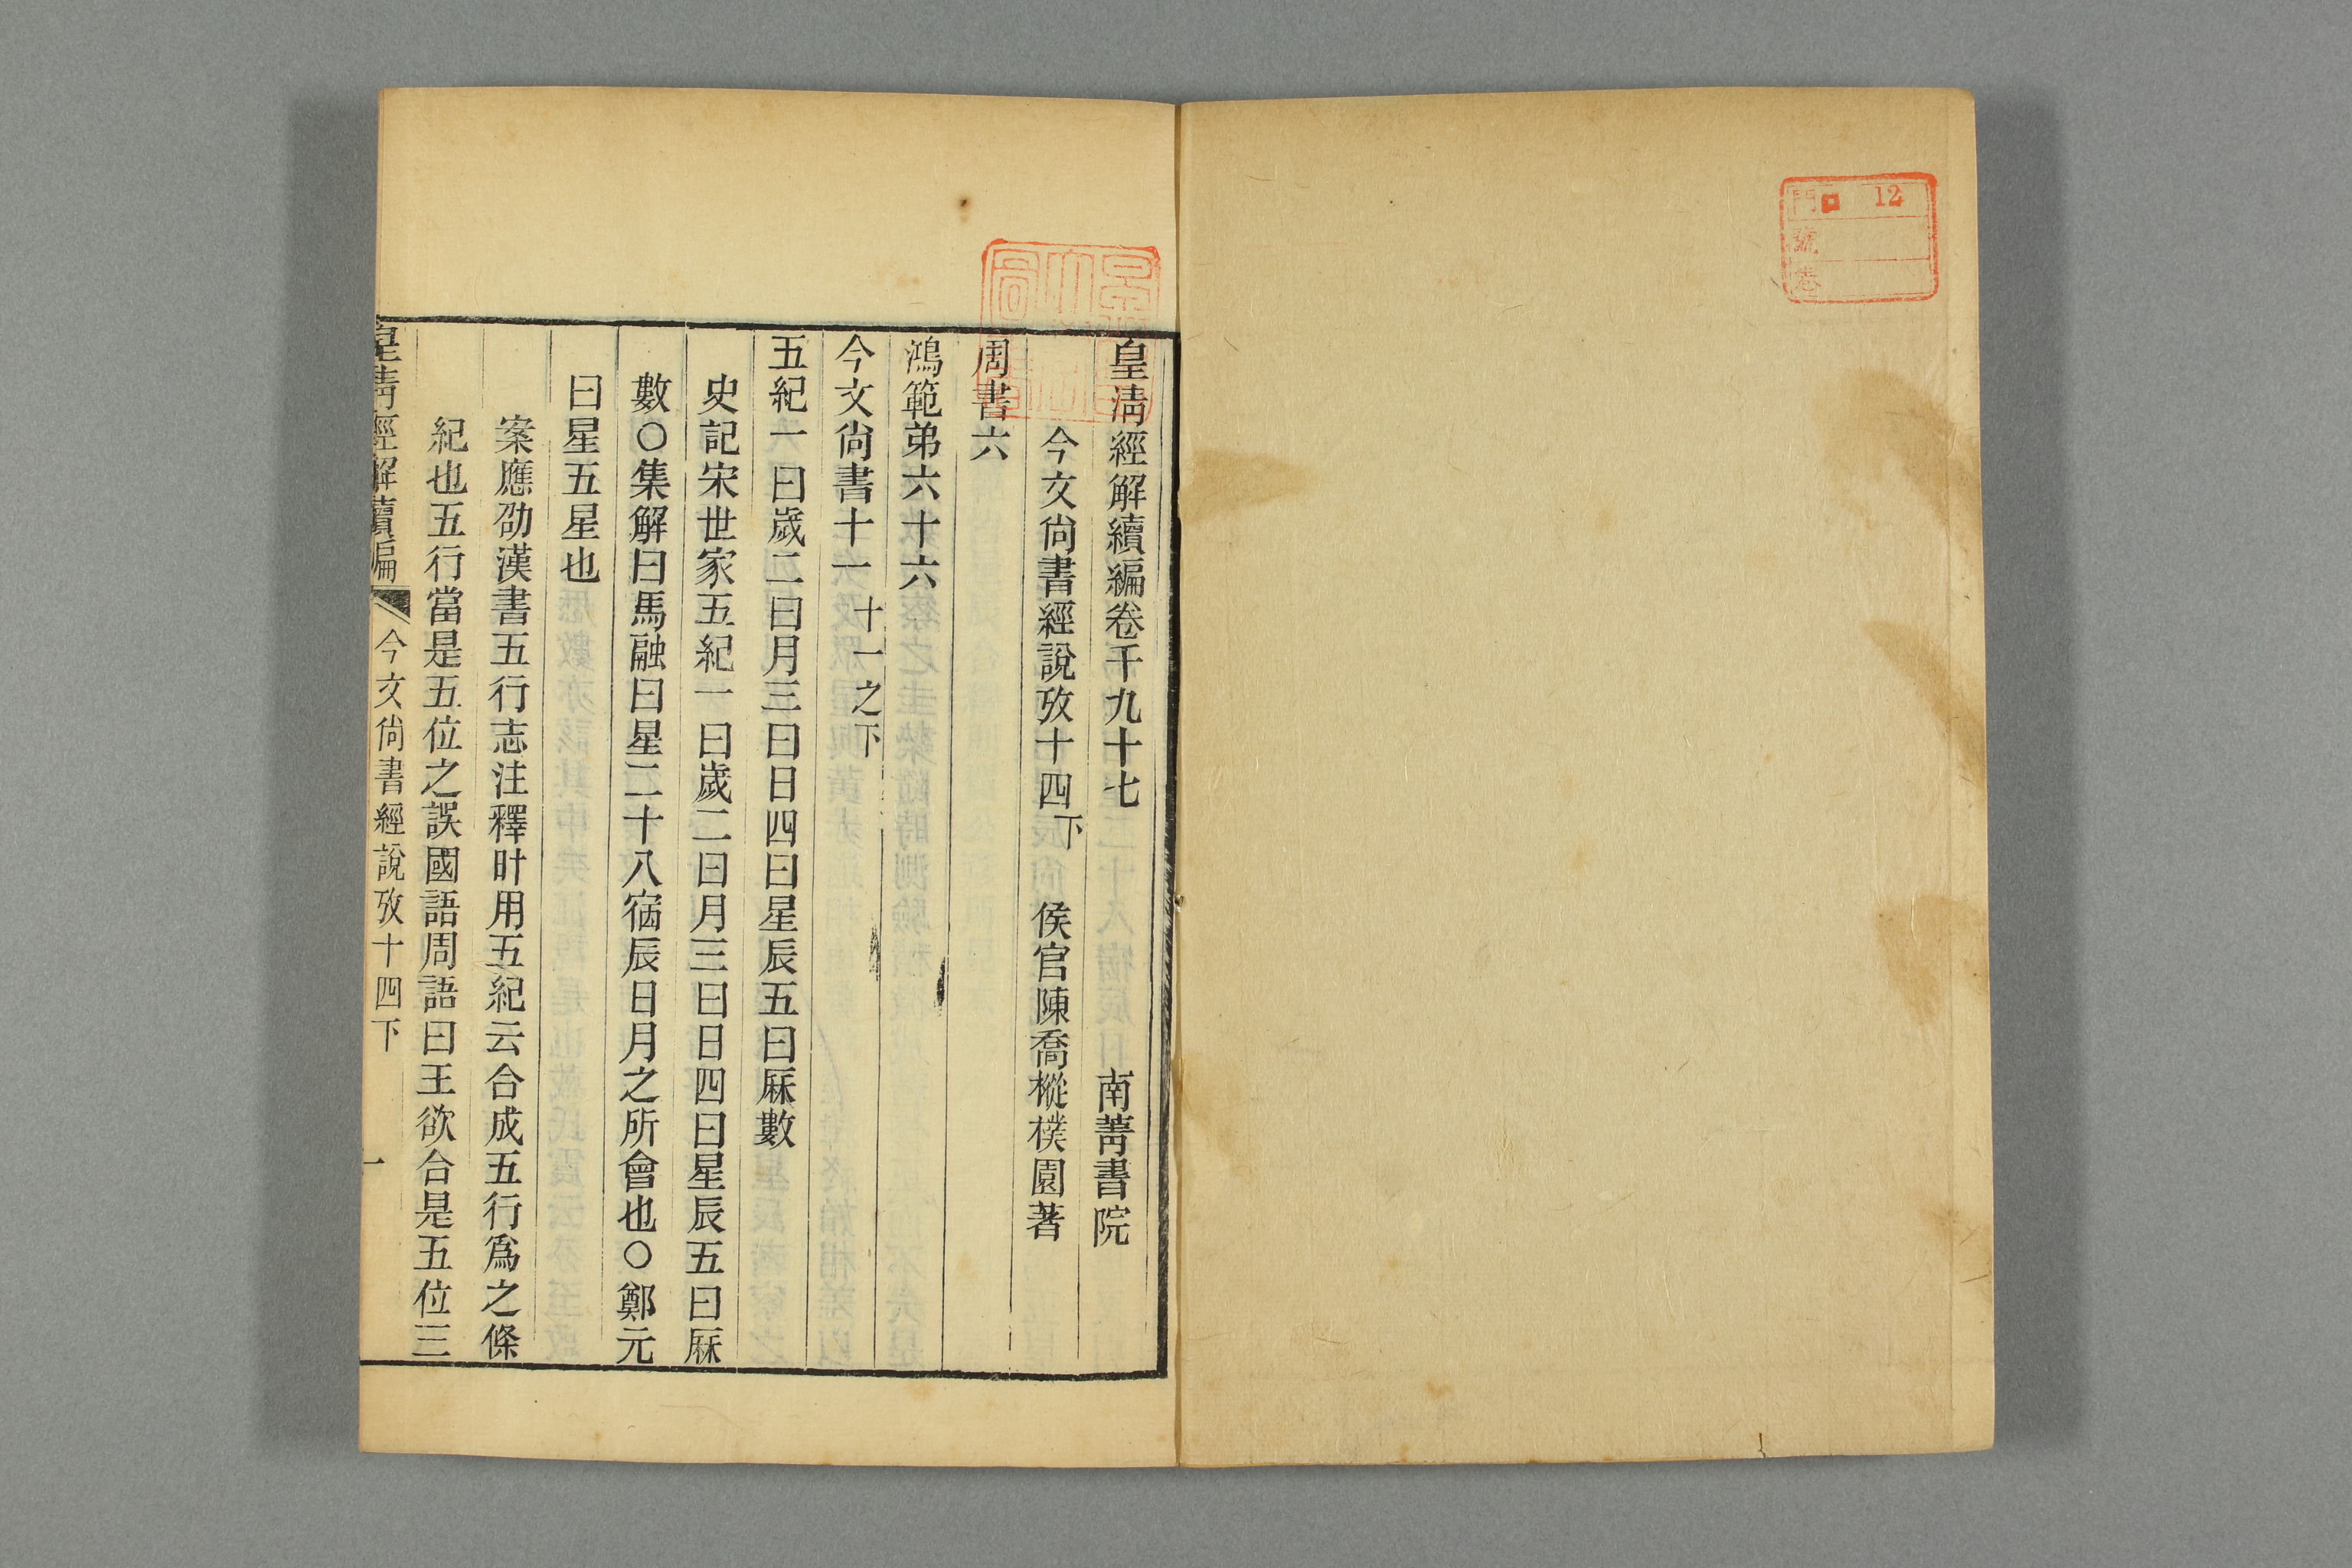 門 12
號
卷
皇清經解續編卷千九十七 南菁書院
今文尚書經說攷十四下 侯官陳喬樅樸園著
周書六
鴻範弟六十六
今文尚書十一 十一之下
五紀一曰歲二曰月三曰日四曰星辰五曰厤數
史記宋世家五紀一曰歲二曰月三曰日四曰星辰五曰厤
數○集解曰馬融曰星二十八宿辰日月之所會也○鄭元
曰星五星也
案應劭漢書五行志注釋旪用五紀云合成五行爲之條
紀也五行當是五位之誤國語周語曰王欲合是五位三
皇清經解續編 今文尚書經說攷十四下 一